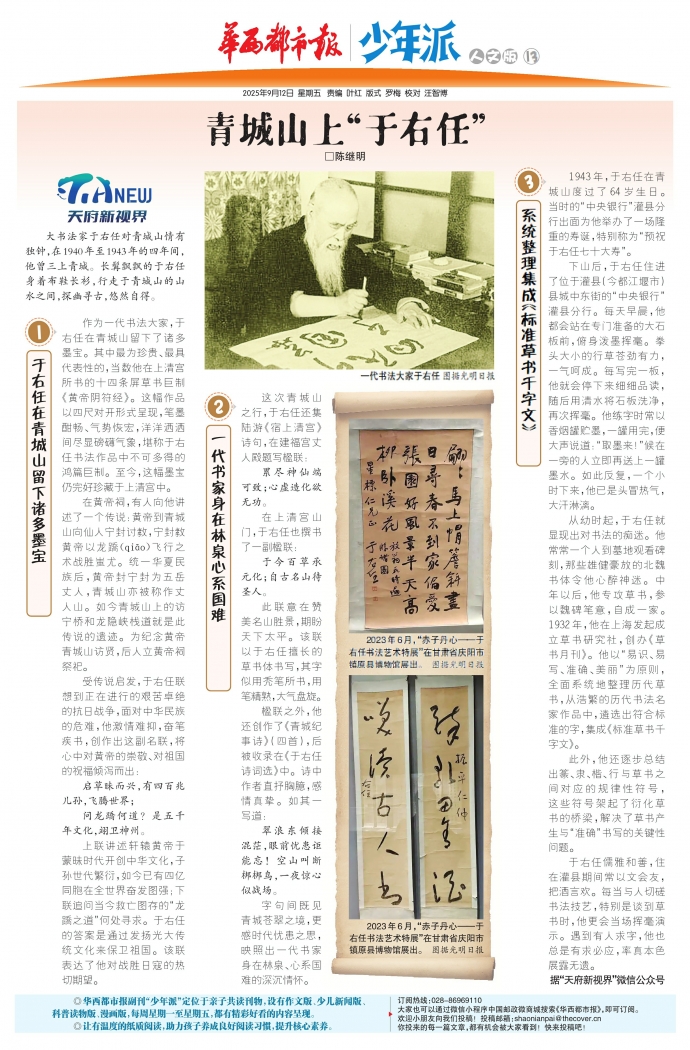 华西都市报
少年派
人文版 13
2025年9月12日 星期五 责编 叶红 版式 罗梅 校对 汪智博
青城山上“于右任”
□陈继明
TIANEW
天府新视界
大书法家于右任对青城山情有
独钟,在1940年至1943年的四年间,
他曾三上青城。长髯飘飘的于右任
身着布鞋长衫,行走于青城山的山
水之间,探幽寻古,悠然自得。
1
于右任在青城山留下诸多墨宝
作为一代书法大家,于
右任在青城山留下了诸多
墨宝。其中最为珍贵、最具
代表性的,当数他在上清宫
所书的十四条屏草书巨制
《黄帝阴符经》。这幅作品
以四尺对开形式呈现,笔墨
酣畅、气势恢宏,洋洋洒洒
间尽显磅礴气象,堪称于右
任书法作品中不可多得的
鸿篇巨制。至今,这幅墨宝
仍完好珍藏于上清宫中。
在黄帝祠,有人向他讲
述了一个传说:黄帝到青城
山向仙人宁封讨教,宁封教
黄帝以龙蹻(qiāo)飞行之
术战胜蚩尤。统一华夏民
族后,黄帝封宁封为五岳
丈人,青城山亦被称作丈
人山。如今青城山上的访
宁桥和龙隐峡栈道就是此
传说的遗迹。为纪念黄帝
青城山访贤,后人立黄帝祠
祭祀。
受传说启发,于右任联
想到正在进行的艰苦卓绝
的抗日战争,面对中华民族
的危难,他激情难抑,奋笔
疾书,创作出这副名联,将
心中对黄帝的崇敬、对祖国
的祝福倾泻而出:
启草昧而兴,有四百兆
儿孙,飞腾世界;
问龙蹻何道?是五千
年文化,翊卫神州。
上联讲述轩辕黄帝于
蒙昧时代开创中华文化,子
孙世代繁衍,如今已有四亿
同胞在全世界奋发图强;下
联追问当今救亡图存的“龙
蹻之道”何处寻求。于右任
的答案是通过发扬光大传
统文化来保卫祖国。该联
表达了他对战胜日寇的热
切期望。
一代书法大家于右任 图据光明日报
2
一代书家身在林泉心系国难
这次青城山
之行,于右任还集
陆游《宿上清宫》
诗句,在建福宫丈
人殿题写楹联:
累尽神仙端
可致;心虚造化欲
无功。
在上清宫山
门,于右任也撰书
了一副楹联:
于今百草承
元化;自古名山待
圣人。
此联意在赞
美名山胜景,期盼
天下太平。该联
以于右任擅长的
草书体书写,其字
似用秃笔所书,用
笔精熟,大气盘旋。
楹联之外,他
还创作了《青城纪
事诗》(四首),后
被收录在《于右任
诗词选》中。诗中
作者直抒胸臆,感
情真挚。如其一
写道:
翠浪东倾接
混茫,眼前忧患讵
能忘!空山叫断
梆梆鸟,一夜惊心
似战场。
字句间既见
青城苍翠之境,更
感时代忧患之思,
映照出一代书家
身在林泉、心系国
难的深沉情怀。
翩翩马上帽檐斜尽
日寻春不到家偏爱
张园好风景半天高
柳卧溪花
于右任
2023年6月,“赤子丹心——于
右任书法艺术特展”在甘肃省庆阳市
镇原县博物馆展出。 图据光明日报
2023年6月,“赤子丹心——于
右任书法艺术特展”在甘肃省庆阳市
镇原县博物馆展出。 图据光明日报
3
系统整理集成《标准草书千字文》
1943年,于右任在青
城山度过了64岁生日。
当时的“中央银行”灌县分
行出面为他举办了一场隆
重的寿诞,特别称为“预祝
于右任七十大寿”。
下山后,于右任住进
了位于灌县(今都江堰市)
县城中东街的“中央银行”
灌县分行。每天早晨,他
都会站在专门准备的大石
板前,俯身泼墨挥毫。拳
头大小的行草苍劲有力,
一气呵成。每写完一板,
他就会停下来细细品读,
随后用清水将石板洗净,
再次挥毫。他练字时常以
香烟罐贮墨,一罐用完,便
大声说道:“取墨来!”候在
一旁的人立即再送上一罐
墨水。如此反复,一个小
时下来,他已是头冒热气,
大汗淋漓。
从幼时起,于右任就
显现出对书法的痴迷。他
常常一个人到墓地观看碑
刻,那些雄健豪放的北魏
书体令他心醉神迷。中
年以后,他专攻草书,参
以魏碑笔意,自成一家。
1932年,他在上海发起成
立草书研究社,创办《草
书月刊》。他以“易识、易
写、准确、美丽”为原则,
全面系统地整理历代草
书,从浩繁的历代书法名
家作品中,遴选出符合标
准的字,集成《标准草书千
字文》。
此外,他还逐步总结
出篆、隶、楷、行与草书之
间对应的规律性符号,
这些符号架起了衍化草
书的桥梁,解决了草书产
生与“准确”书写的关键性
问题。
于右任儒雅和善,住
在灌县期间常以文会友,
把酒言欢。每当与人切磋
书法技艺,特别是谈到草
书时,他更会当场挥毫演
示。遇到有人求字,他也
总是有求必应,率真本色
展露无遗。
据“天府新视界”微信公众号
◎华西都市报副刊“少年派”定位于亲子共读刊物,设有作文版、少儿新闻版、
科普读物版、漫画版,每周星期一至星期五,都有精彩好看的内容呈现。
◎让有温度的纸质阅读,助力孩子养成良好阅读习惯,提升核心素养。
订阅热线:028-86969110
大家也可以通过微信小程序中国邮政微商城搜索《华西都市报》,即可订阅。
欢迎小朋友向我们投稿!投稿邮箱:shaonianpai@thecover.cn
你投来的每一篇文章,都有机会被大家看到!快来投稿吧!